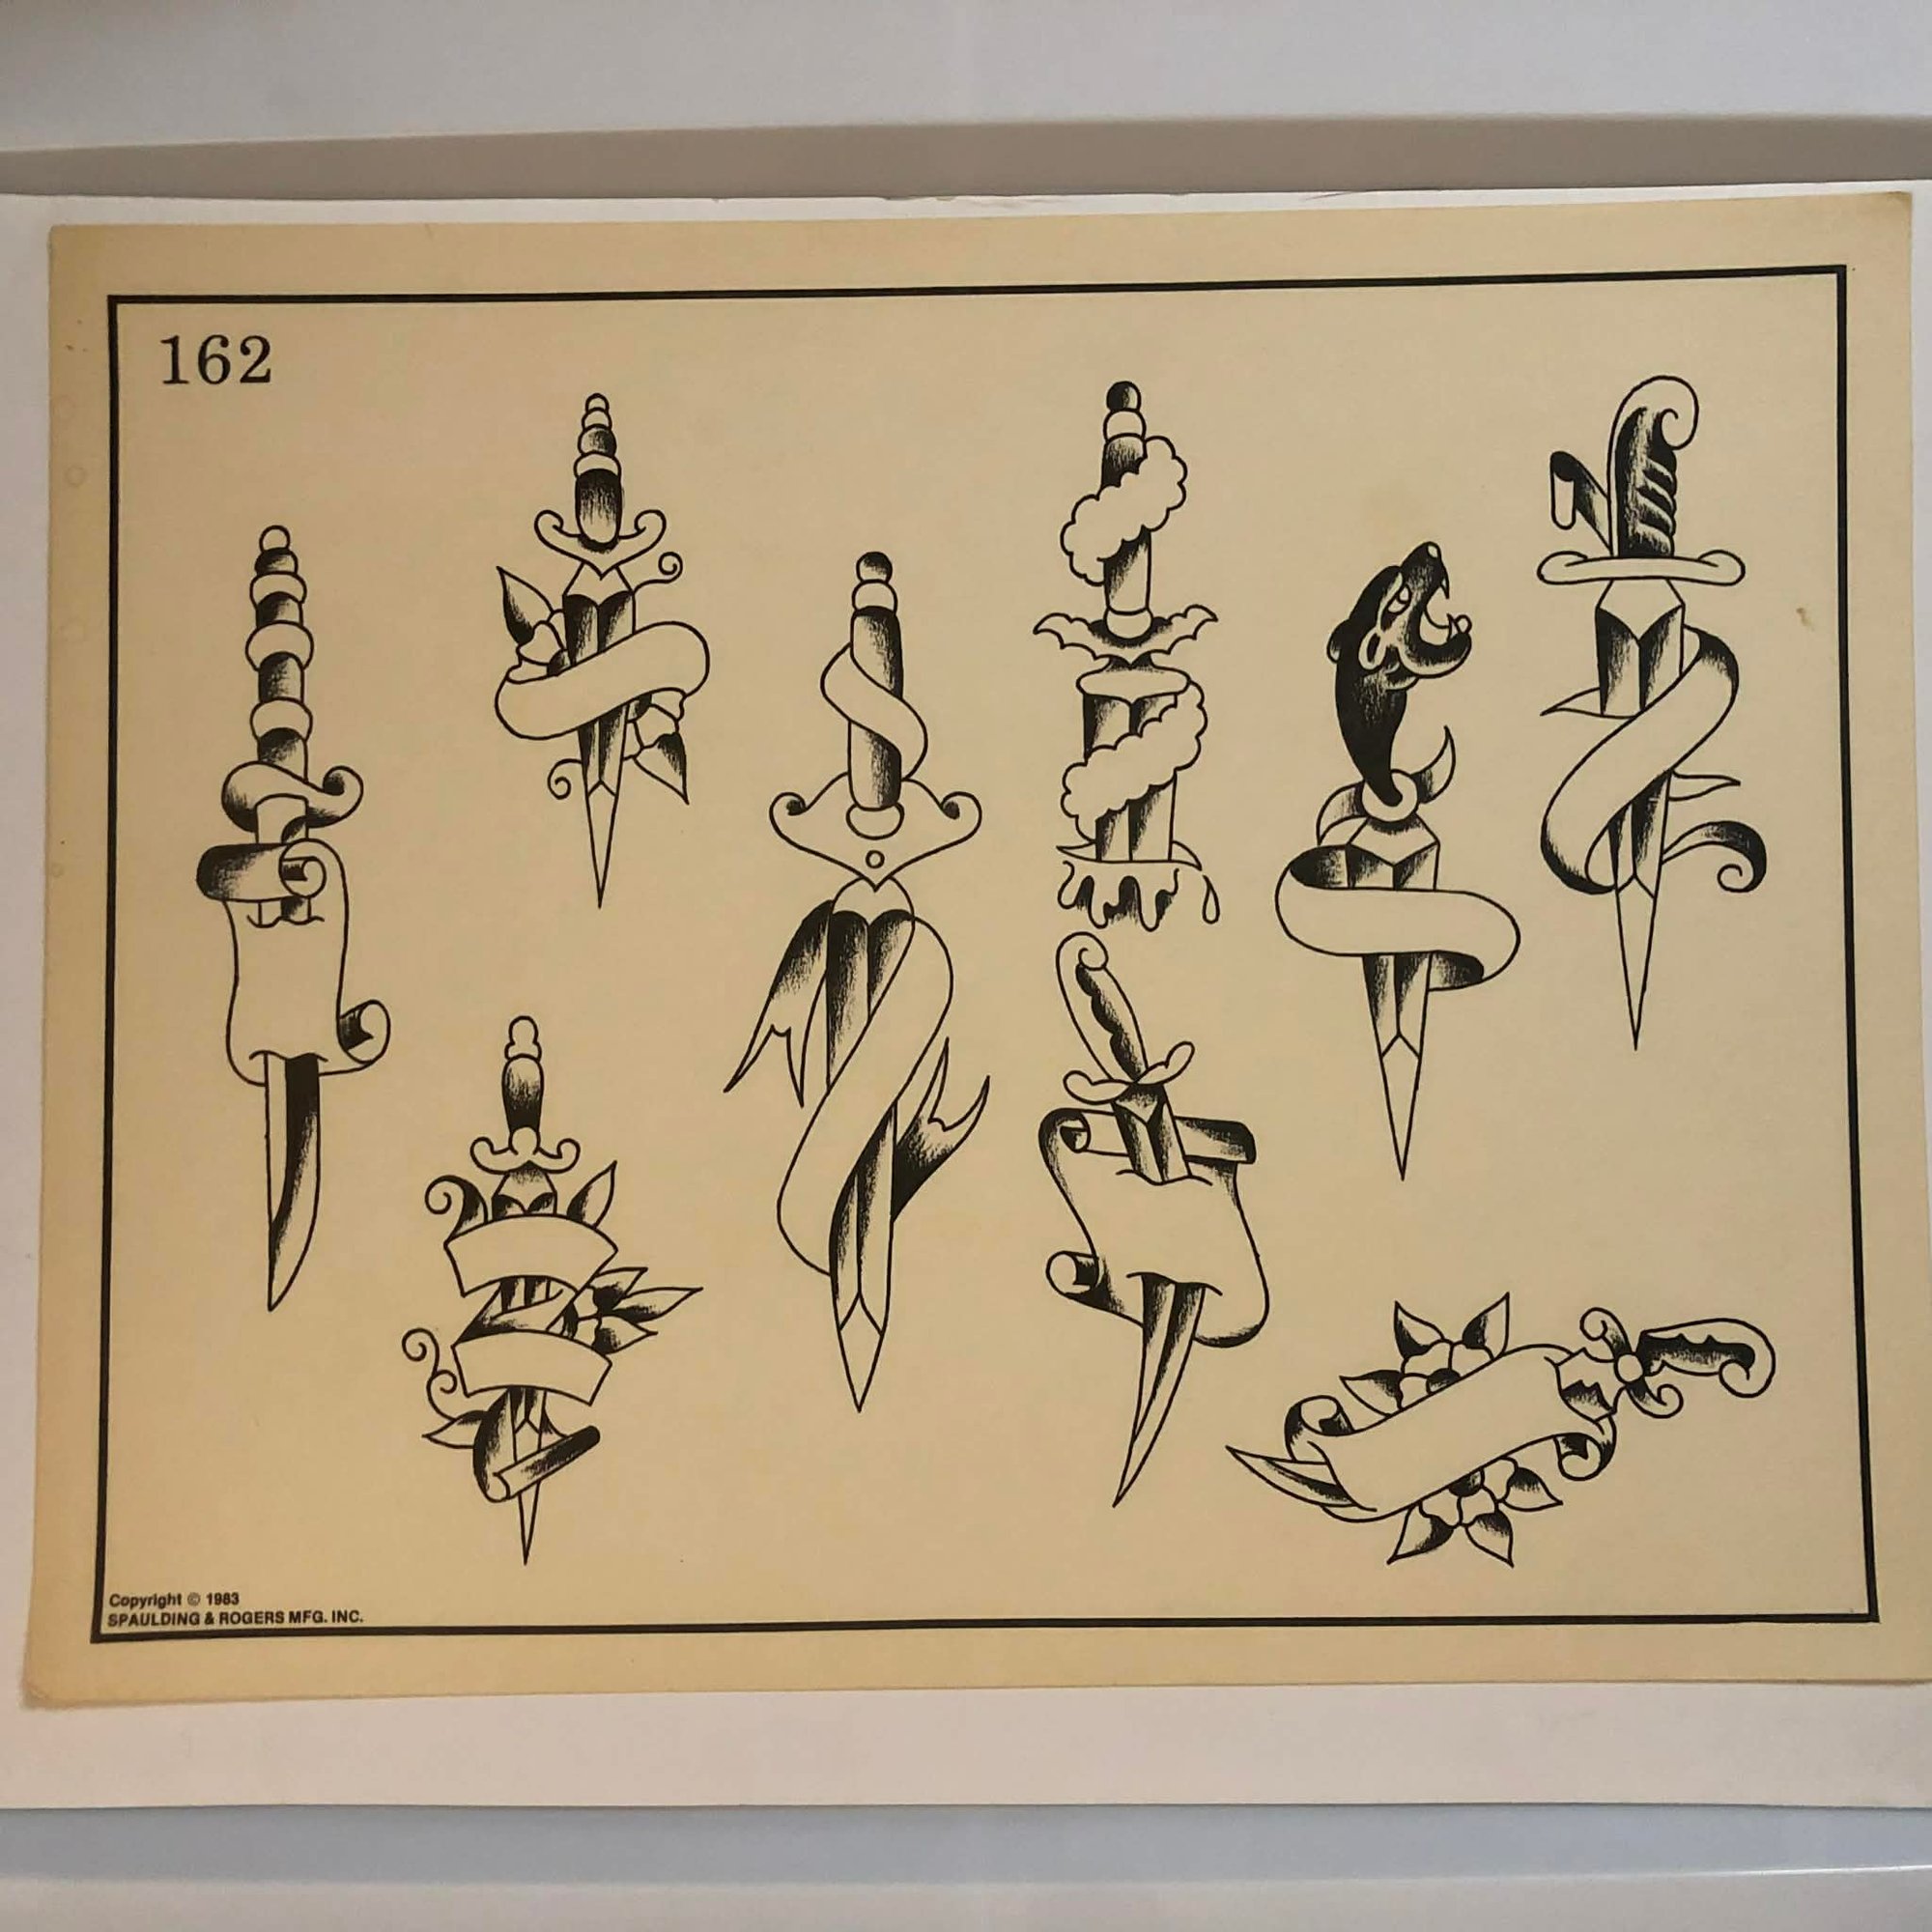 162
Copyright © 1983
SPAULDING & ROGERS MFG. INC.